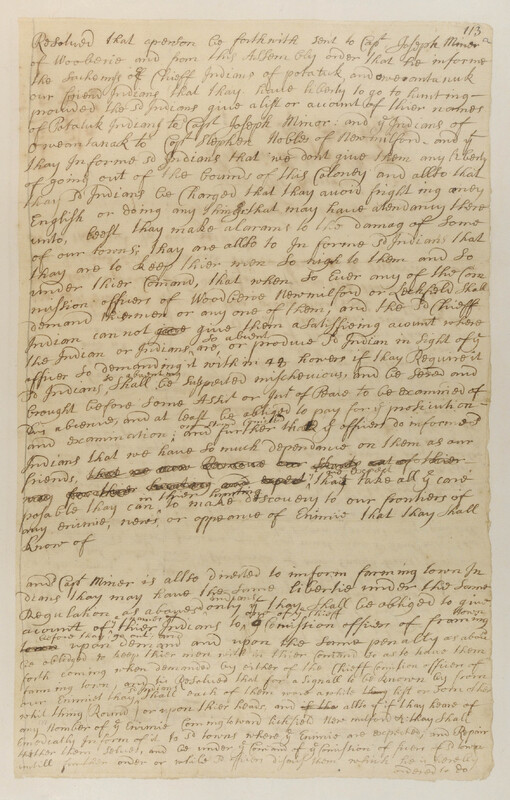 113
Resolved that aperson be forthwith sent to Capt Joseph Minor
of Wooberie and from this Assembly order that he informe
the Sachems or Chieff Indians of potatuk and oweantanuk
our friend Indians that thay have liberty to go to hunting
provided the sd Indians give alist or acount of thier names
of Potatuk Indians to Capt Joseph Minor and ye Indians of
oweantanack to Capt Stephen Nobles of New milford and yt
thay Informe sd Indians that we dont give them any liberty
of going out of the bounds of this Coloney and allso that
thay sd Indians be Charged that thay avoid fright ing any
English or doing any things that may have atendancy there
unto, least thay make alarams to the damag of Some
of our towns; thay are allso to In forme sd Indians that
thay are to keep thier men So nigh to them and So
under thier Comand, that when So Ever any of the Com
mission officers of Wooberie New milford or Leichfield Shall
demand thier men or any one of them; and the sd Chieff
Indian can not give them a Satisfieing acount where
the Indian or Indians so absent are, or produce sd Indian in Sight of ye
officer So demanding it with in howers if thay Require it
sd Indians so absent Shall be Suspected mischevious, and be Seized and
brought before Some Asist or Just of Peace to be examined of
his absence, and at least be obliged to pay for sd prosicution
and examination; and further that sd officers do informe sd
Indians that we have So much dependance on them as our
friends, that we expect that thay take all ye care
posable thay can in thier hunting to make discovery to our frontiers of
any enimie, news, or appeance of Enimie that thay Shall
Know of
and Capt Miner is allso directed to inform farming town In
dians thay may have the Same libertie under the Same
Regulation as above only yt thay Shall be obliged to give
account of thier Indians names to ye Comission officer of farming
town before thay go out and upon demand and upon the Same penalty as above
be obliged to keep thier men So in thier Comand as to have them
forth coming when demanded by either of the Chieff Comission officers of
farming town; and it is Resolved that for a Signall to be known by from
our Enimies thay Shall each of them ware a white list or Some other
whit thing Round or upon thier heads, and allso if thay heare of
any Number of ye Enimie Coming toward lichfield New milford &c thay Shall
Imediatly inform of it to sd towns where ye Enimie are expected, and Repair
thither them Selves, and be under ye Comand of ye Comission officers of sd towns
untill further order or while sd officers dismiss them, which he is hereby
ordered to do